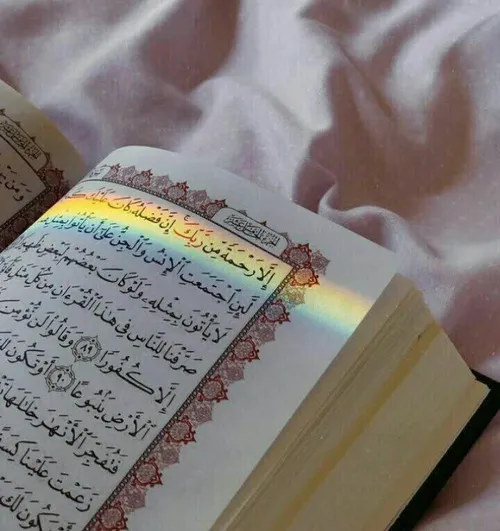 الجزء الخامس عشر
إِلَّا رَحْمَةً مِّن رَّبِّكَ إِنَّ فَضْلَهُۥ كَانَ عَلَيْكَ
لَّئِنِ ٱجْتَمَعَتِ ٱلْإِنسُ وَٱلْجِنُّ عَلَىٰٓ أَن يَأْتُوا۟ بِمِثْلِ
لَا يَأْتُونَ بِمِثْلِهِۦ وَلَوْ كَانَ بَعْضُهُمْ لِبَعْضٍ
صَرَّفْنَا لِلنَّاسِ فِى هَٰذَا ٱلْقُرْءَانِ مِن كُلِّ مَثَلٍ
إِلَّا كُفُورًا ٨٩ وَقَالُوا۟ لَن نُّؤْمِنَ
ٱلْأَرْضِ يَنۢبُوعًا ٩٠ أَوْ تَكُونَ لَكَ
فَتُفَجِّرَ ٱلْأَنْهَٰرَ خِلَٰلَهَا
زَعَمْتَ عَلَيْنَا كِسَفًا
يَكُونَ لَكَ